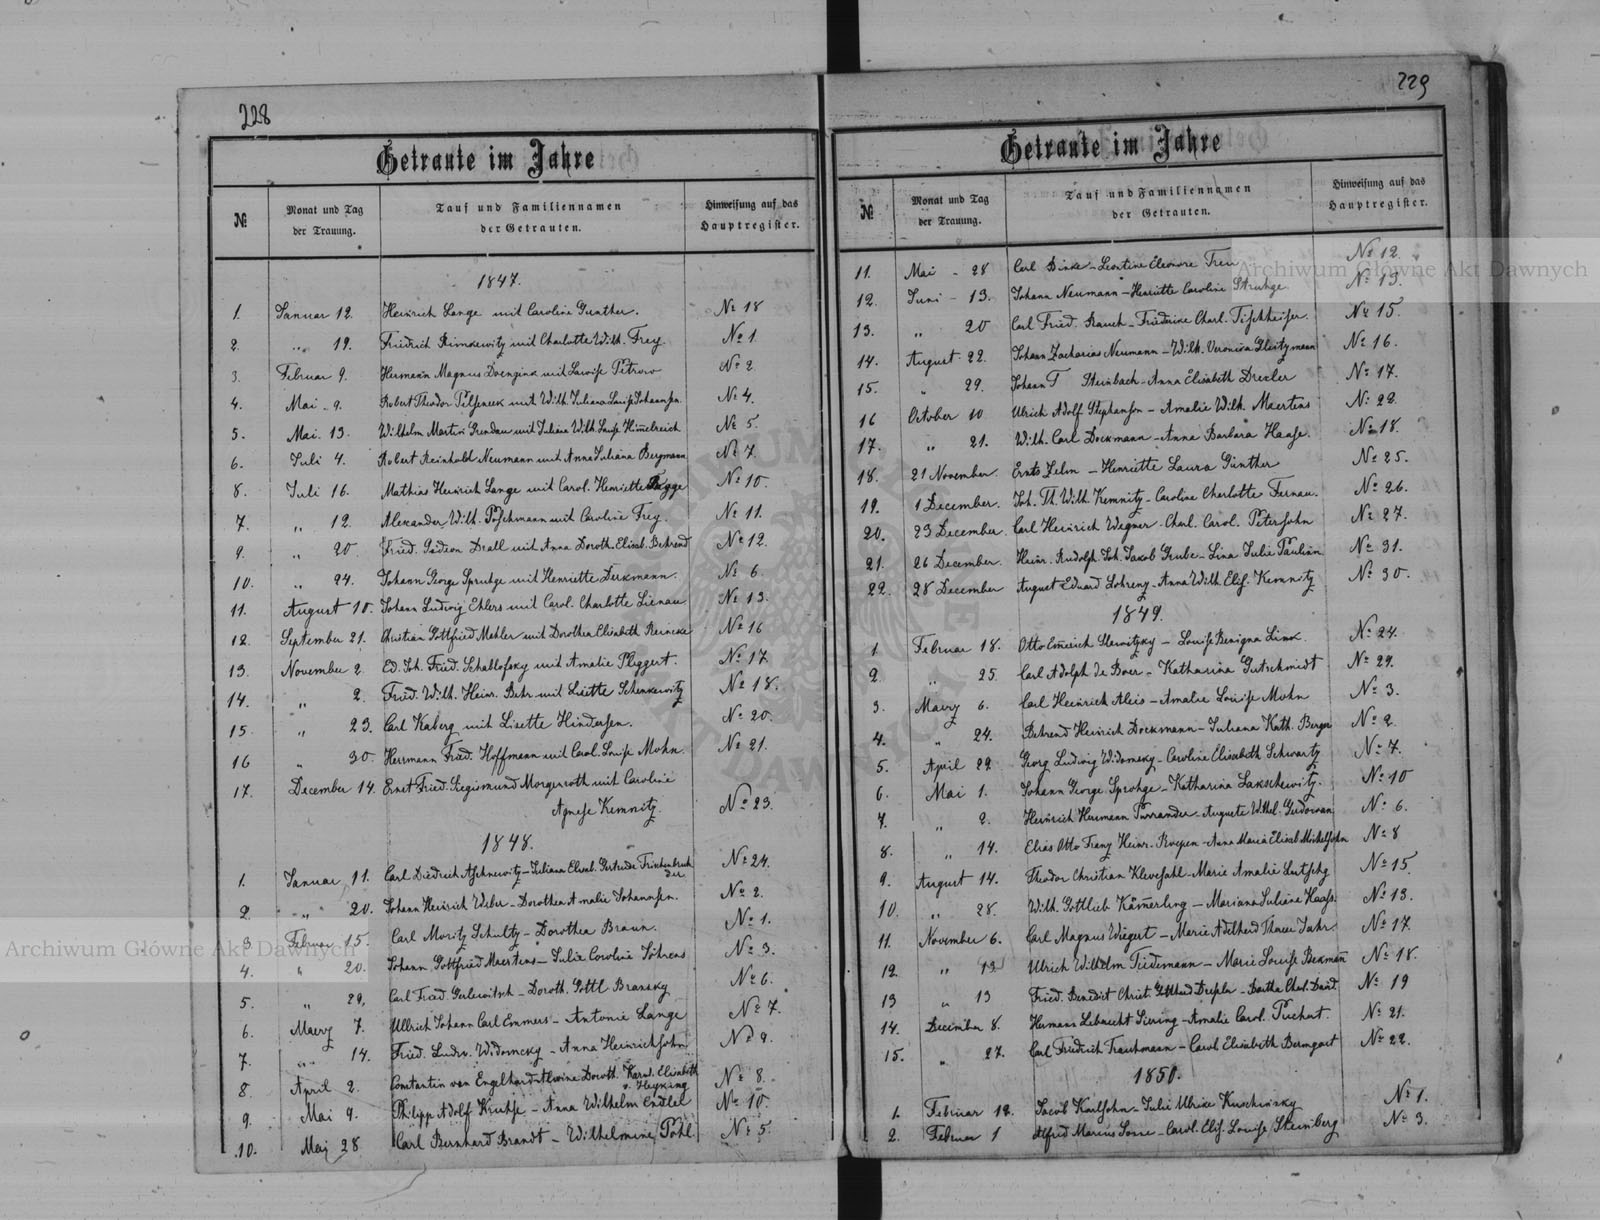 228
Getraute im Jahre
№ Monat und Tag der Trauung. Tauf und Familiennamen der Getrauten. Hinweisung auf das Hauptregister.
1847.
1. Januar 12. Heinrich Lange mit Caroline Gunther. № 18
2. „ 19. Friedrich Rimkewitz mit Charlotte Wilh. Frey. № 1
3. Februar 9. Hermann Magnus mit Lowise Petrow № 2
4. Mai 9. Robert Theodor mit Wilh. Juliana Louise Johannsen. № 4.
5. Mai. 13. Wilhelm Martin Grundau mit Juliana Wilh. Louise Himelreich № 5.
6. Juli 4. Robert Reinhold Neumann mit Anna Juliana Bergmann № 7.
8. Juli 16. Mathias Heinrich Lange mit Carol. Henriette № 10.
7. „ 12. Alexander Wilh. Poschmann mit Caroline Frey. № 11.
9. „ 20. Fried. Gideon Drall mit Anna Doroth. Elisab. Behrend № 12.
10. „ 24. Johann George Spruhge mit Henriette Derkmann. № 6
11. August 10. Johann Ludwig Ehlers mit Carol. Charlotte Lienau № 13.
12. September 21. Christian Gottfried Mahler mit Dorothea Elisabeth Reinecke № 16
13. November 2. Ed. Joh. Fried. Schallofsky mit Amalie Pliggert. № 17
14. „ 2. Fried. Wilh. Heinr. Behr mit Lisette Schenkewitz № 18.
15. „ 23. Carl Kaberg mit Lisette Hindersen. № 20.
16 „ 30. Herrmann Fried. Hoffmann mit Carol. Louise Mohn № 21.
17. December 14. Ernst Fried. Siegismund Morgenroth mit Caroline
Agnese Kemnitz. № 23.
1848.
1. Januar 11. Carl Diedrich – Juliana Elisab. Gertrude № 24.
2. „ 20. Johann Heinrich Weber – Dorothea Amalie Johannsen. № 2.
3 Februar 15. Carl Moritz Schultz – Dorothea Braun. № 1.
4. „ 20. Johann Gottfried Maertens – Julie Caroline Töhrens № 3.
5. „ 29, Carl Fried. Gerlewitsch – Doroth. Gottl Bransky № 6.
6. Maerz 7. Ullrich Johann Carl Emmers – Antonie Lange № 7.
7. „ 14. Fried. Ludw. Widorncky – Anna Heinrichsohn № 9.
8 April 2. Constantin von Engelhardt Doroth. Elisabeth
v. Heyking № 8
9. Mai 9. Philipp Adolf Kruhse – Anna Wilhelm № 10.
10. Mai 28 Carl Bernhard Brandt – Wilhelmine Pohl № 5
229
Getraute im Jahre
№ Monat und Tag der Trauung. Tauf und Familiennamen der Getrauten. Hinweisung auf das Hauptregister.
11. Mai – 28 Carl Binke – Leontine Eleonore Treu № 12.
12. Juni – 13. Johann Neumann – Henriette Caroline Struhge № 13.
13. „ 20 Carl Fried. Rauch – Friedrike Charl. Tischheiser. № 15.
14. August 22. Johann Zacharias Neumann – Wilh. Veronica № 16.
15. „ 29. Johann T Steinbach – Anna Elisabeth Drexler № 17.
16 October 10 Ulrich Adolf Stephanson – Amalie Wilh. Maertens № 22.
17. „ 21. Wilh. Carl Dockmann – Anna Barbara Haase. № 18.
18. 21 November. Ernts Zelm – Henriette Laura Günther № 25.
19. 1 December. Joh. Th. Wilh. Kemnitz – Caroline Charlotte Fernau. № 26.
20. 23 December. Carl Heinrich Wegner – Charl. Carol. Petersohn № 27.
21. 26 December. Heinr. Rudolph. Joh. Jakob Grube – Lina Julie Paulian № 31.
22. 28 December August Eduard Lohrenz – Anna Wilh. Elis. Kemnitz № 30.
1849.
1 Februar 18. Otto Emerich Slewitzky – Louise Benigna Link № 24.
2 „ 25. Carl Adolph de Boer – Katharina Gutschmidt № 29.
3. Maerz 6. Carl Heinrich Aleis – Amalie Louise Mohn № 3.
4. „ 24. Behrend Heinrich Dockmann – Juliana Kath. Berger № 2.
5. April 22 Georg Ludwig Widomsky – Caroline Elisabeth Schwartz № 7.
6. Mai 1. Johann George Sprohge – Katharina Lakschewitz. № 10
7. „ 2. Heinrich Herrmann Purrander – Auguste Wilhel. № 6.
8. „ 14. Elias Otto Franz Heinr. Roepen – Anna Maria Elisab Michelsohn № 8
9. August 14. Theodor Christian Klevesahl – Marie Amalie № 15
10. „ 28. Wilh. Gottlieb Kämerling – Mariana Juliane Haase. № 13.
11. November 6. Carl Magnus Wiegert – Marie Adelheid Jahr № 17.
12. „ 13 Ulrich Wilhelm Tiedemann – Marie Louise Bekmann № 18.
13 „ 13 Fried. Benedict Christ. Gotthard Drexler – Bertha Charl. David № 19
14. December 8. Hermann Lebrecht Siering – Amalie Carol. Puchert. № 21.
15. „ 27. Carl Friedrich Trautmann – Carol Elisabeth Bermgart № 22.
1850.
1. Februar 12. Jacob Karlsohn – Julie Ulrike Kuschinsky № 1.
2. Februar 1 Alfred Marius – Carol. Elis. Louise Steinberg № 3.
Archiwum Główne Akt Dawnych
Archiwum Główne Akt Dawnych